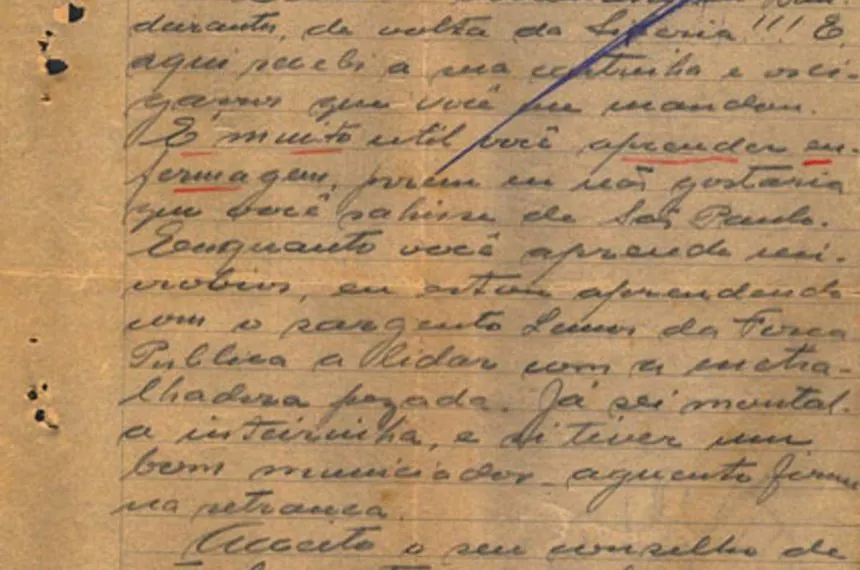 durante, de volta da Siberia!!! E,
aqui recebi a sua cartinha e os ci-
garros que você me mandou.
E' muito util você aprender en-
fermagem, porem eu não gostaria
que você sahisse de São Paulo.
Emquanto você aprende mi-
crobios, eu estou aprendendo
com o sargento Lemos da Força
Publica a lidar com a metra-
lhadora pezada. Já sei montal-
a inteirinha, e si tiver um
bom municiador aguento firme
na retranca.
Acceito o seu conselho de